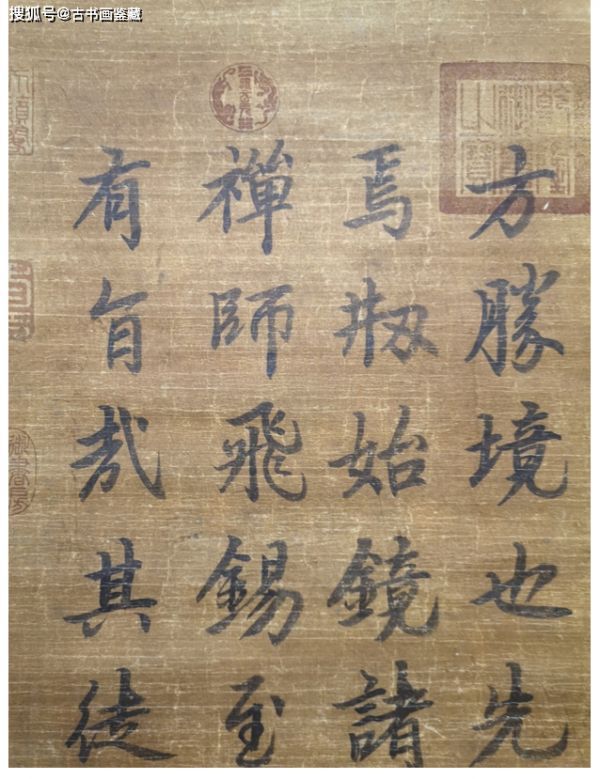 搜狐号@古书画鉴藏
方勝境也先
焉刱始鏡諸
禪師飛錫至
有旨哉其徒
御書房